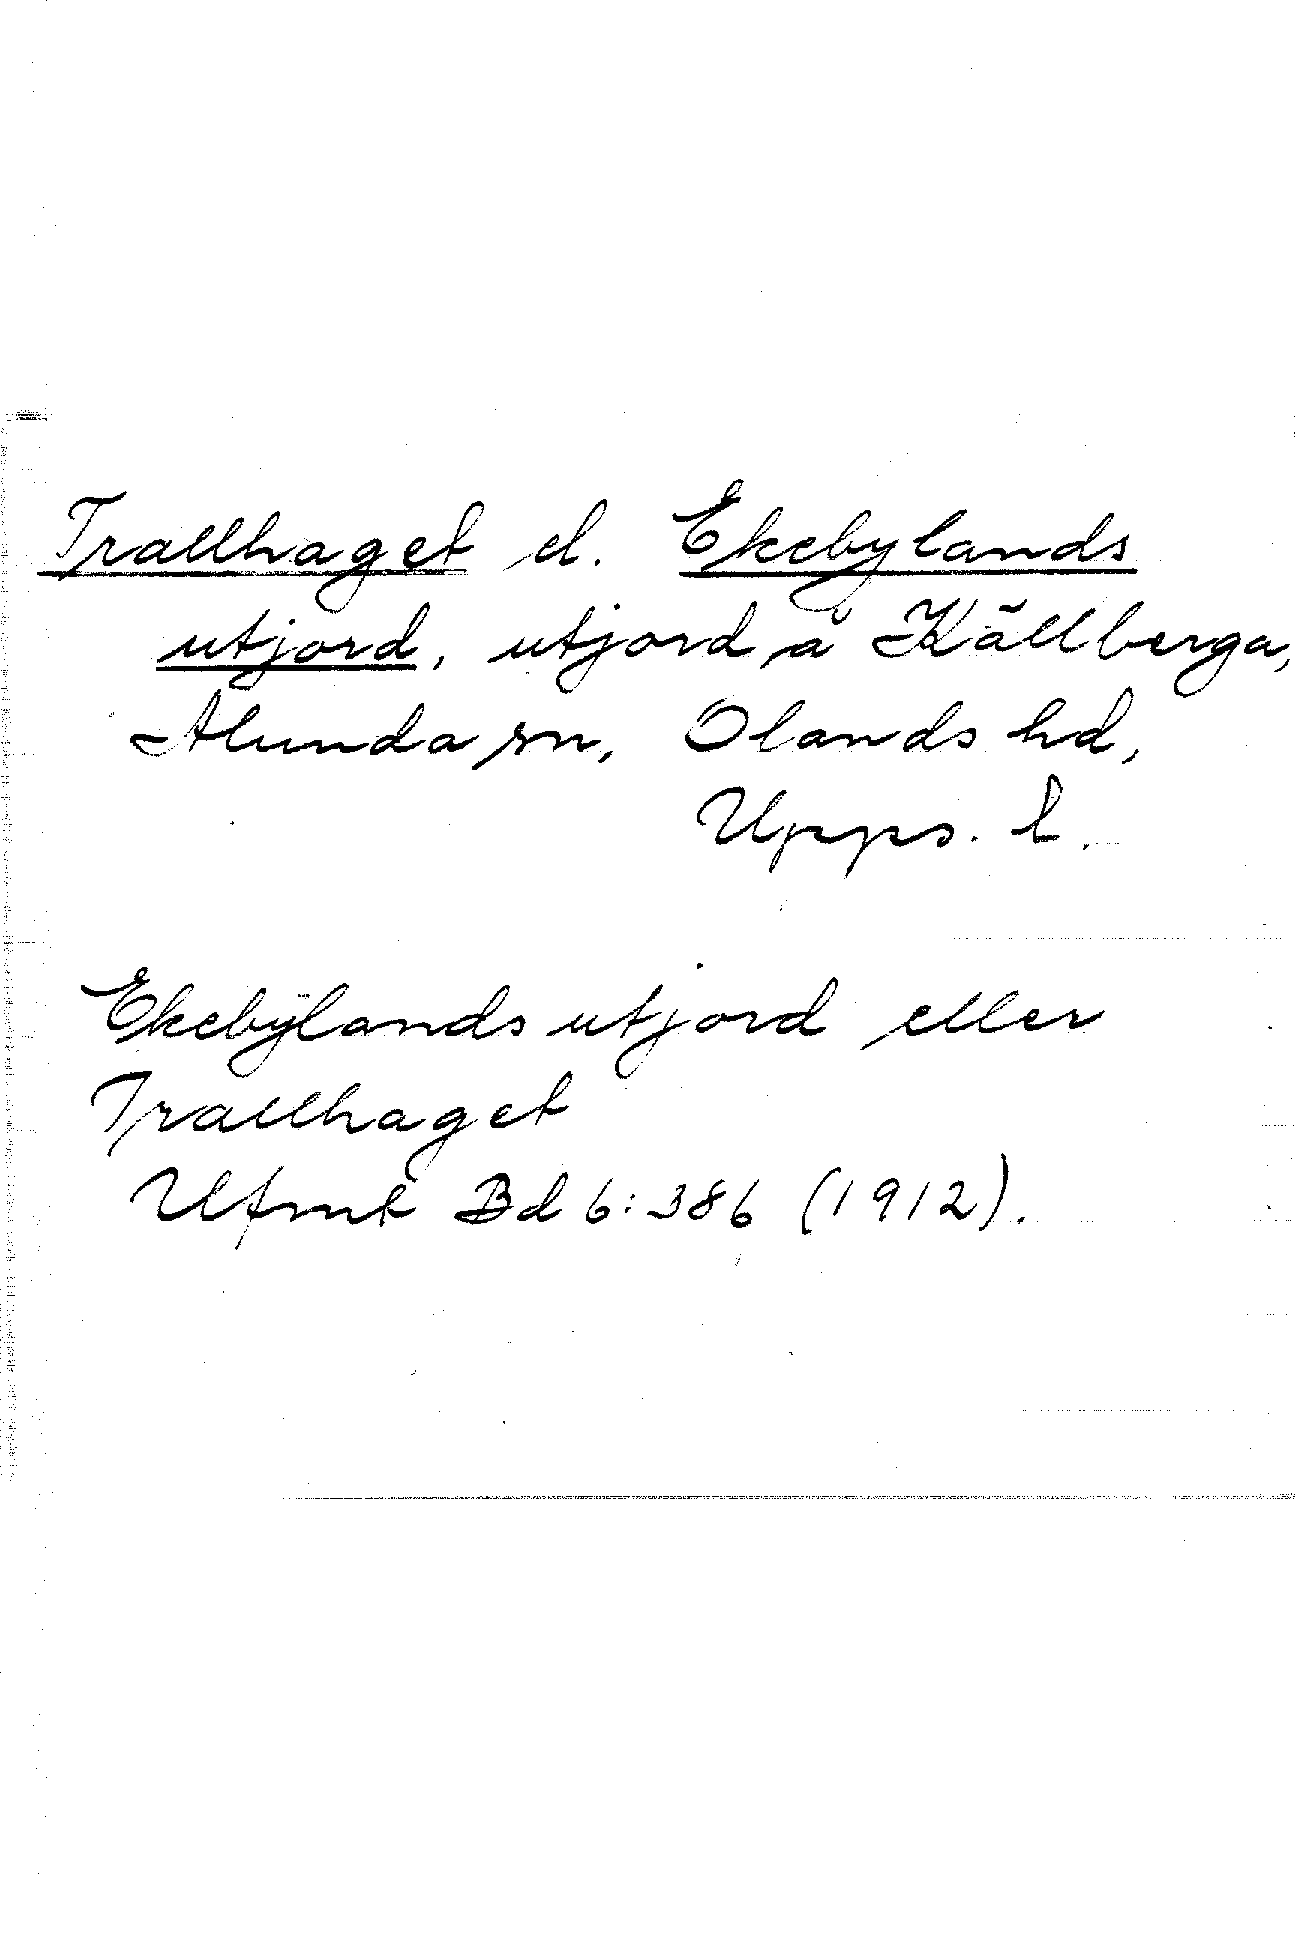 Trallhaget el. Ekebylands
utjord, utjord å Källberga,
Alunda sn, Olands hd,
Upps. l.
Ekebylands utjord eller
Trallhaget
Ufmk Bd 6:386 (1912).